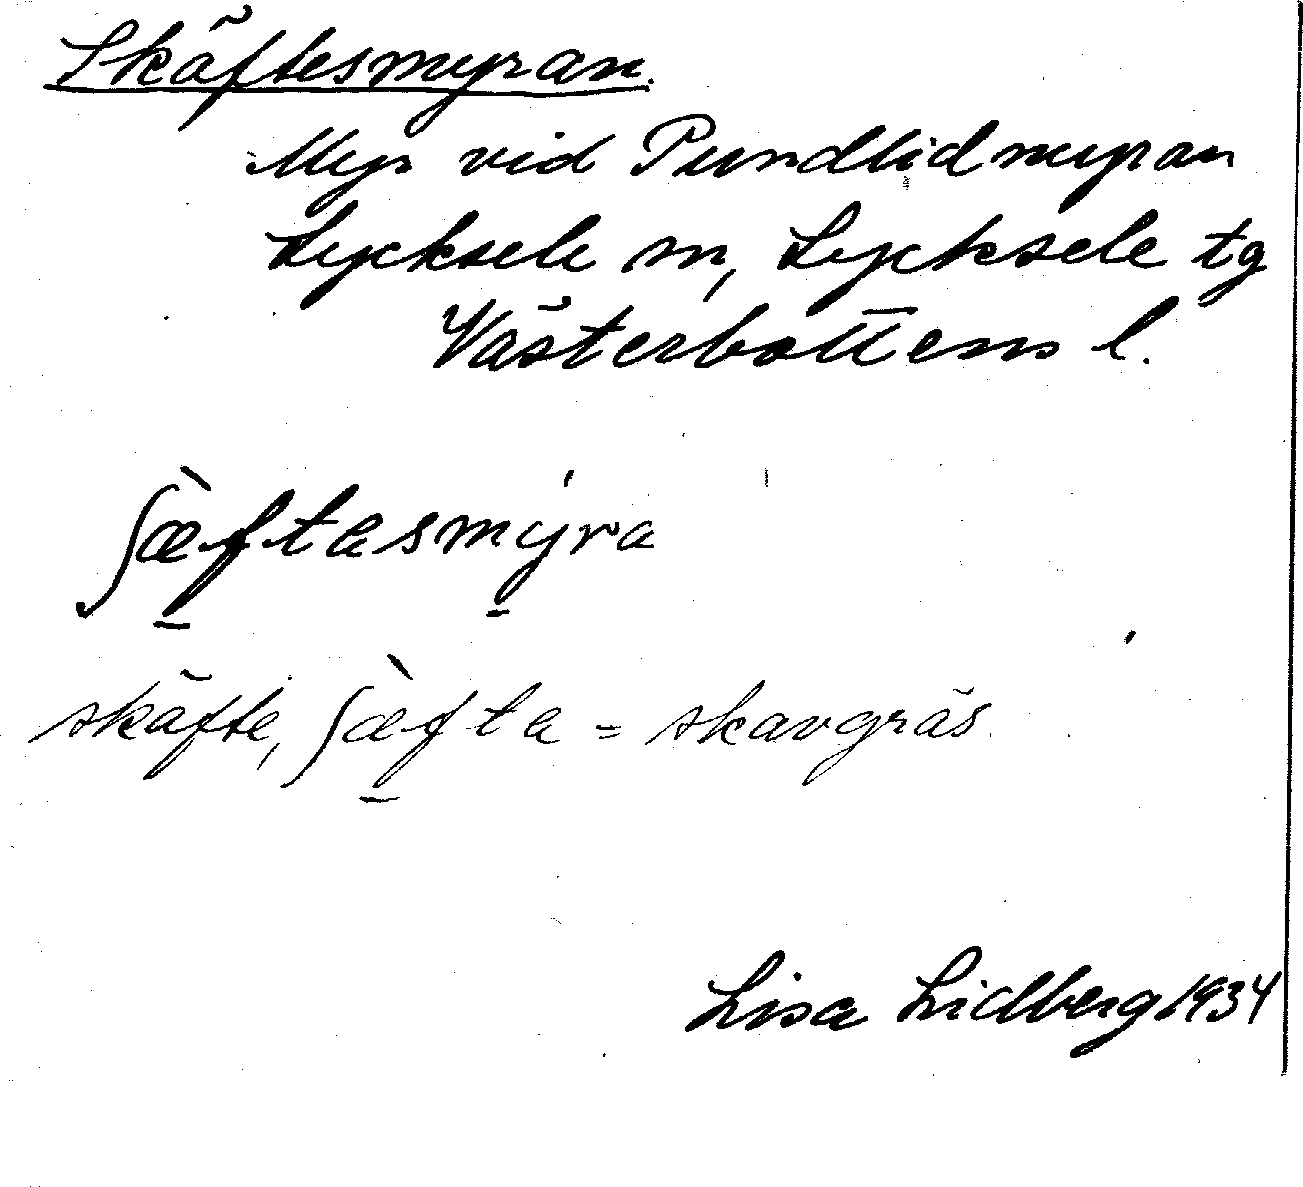 Skäftesmyran.
Myr vid Pundlidmyran
Lycksele m, Lycksele tg
Västerbottens l.
ʃæ̀ftesmýra
skäfte, ʃæ̀fta = skavgräs
Lisa Lidberg 1934